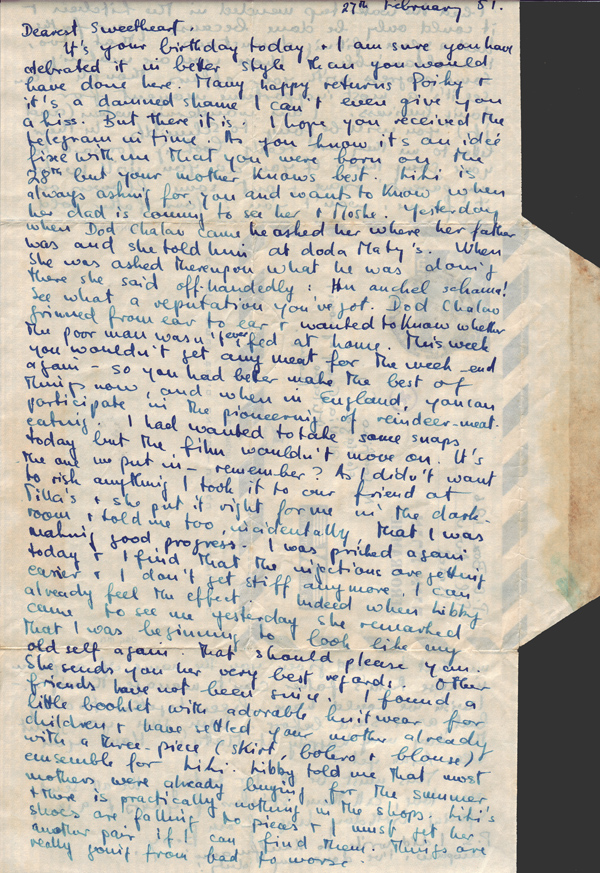 27th February 51.
Dearest Sweetheart.
It's your birthday today + I am sure you have
celebrated it in better style than you would
have done here. Many happy returns Poiky +
it's a damned shame I can't even give you
a kiss. But there it is. I hope you received the
telegram in time. As you know it's an idée
fixe with me that you were born on the
28th but your mother knows best. Kiki is
always asking for you and wants to know when
her dad is coming to see her + Moshe. Yesterday
when Dod Chalav came he asked her where her father
was and she told him at doda Maty's. When
she was asked thereupon what he was doing
there she said off-handedly: Hu auchel schama!
See what a reputation you've got. Dod Chalav
grinned from ear to ear + wanted to know whether
the poor man wasn't ever fed at home. This week
you wouldn't get any meat for the week-end
again - so you had better make the best of
things now, and when in England, you can
participate in the pioneering of reindeer-meat
eating. I had wanted to take some snaps
today but the film wouldn't move on. It's
the one we put in - remember? As I didn't want
to risk anything I took it to our friend at
Tilla's + she put it right for me in the dark-
room + told me too, incidentally, that I was
making good progress. I was pricked again
today + I find that the injections are getting
easier + I don't get stiff anymore. I can
already feel the effect. Indeed when Libby
came to see me yesterday she remarked
that I was beginning to look like my
old self again. That should please you.
She sends you her very best regards. Other
friends have not been since. I found a
little booklet with adorable knitwear for
children + have settled your mother already
with a three-piece (skirt, bolero + blouse)
ensemble for Kiki. Libby told me that most
mothers were already buying for the summer
+ there is practically nothing in the shops. Kiki's
shoes are falling to pieces + I must get her
another pair if I can find them. Things are
really going from bad to worse.